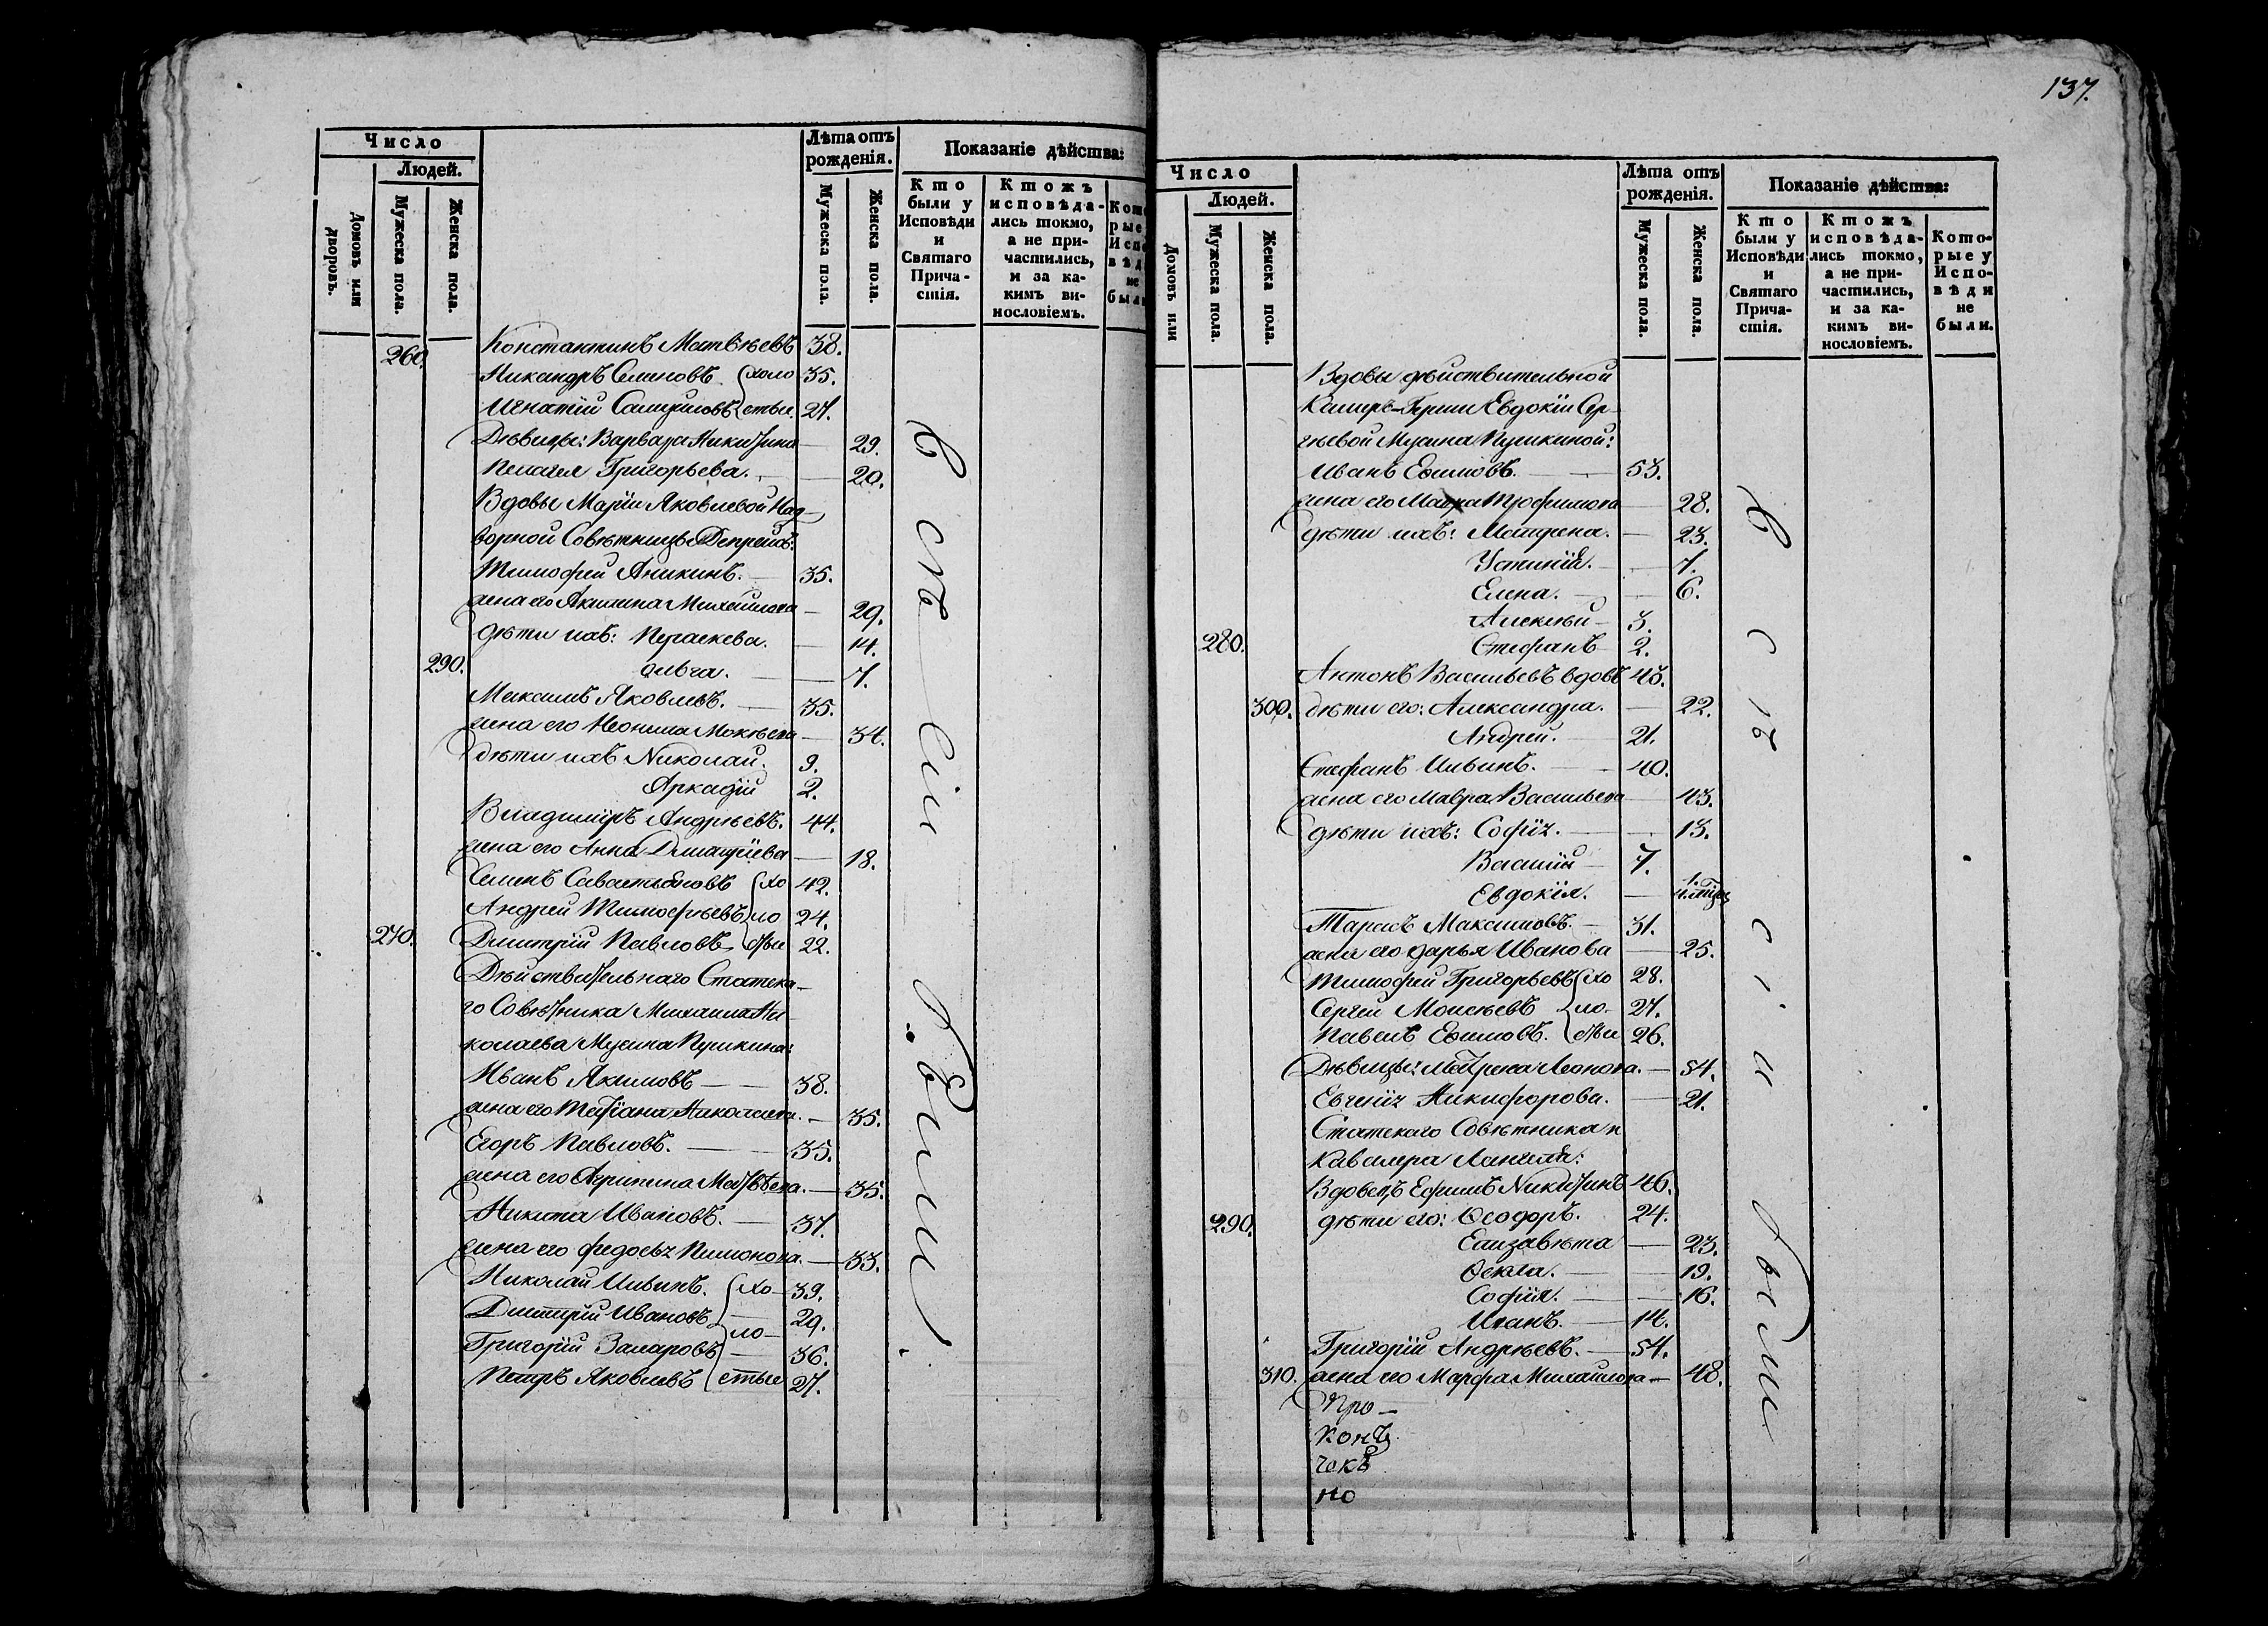 Число
Людей.
Домовъ или дворовъ.
Мужеска пола.
Женска пола.
Лѣта отъ рожденія.
Мужеска пола.
Женска пола.
Показаніе дѣйства:
Кто были у Исповѣди и Святаго Прича-стія.
Ктожъ исповѣда-лись токмо, а не при-частились, и за ка-кимъ ви-нословіемъ.
260. Константинъ Матвѣевъ 38.
Никандръ Семеновъ холо 35.
Игнатій Самуиловъ стые 27.
Дѣвицы: Варвара Никитина — 29.
Пелагея Григорьева. — 20.
Вдовы Маріи Яковлевой Над-
ворной Совѣтницы
Тимофей Аникинъ. — 35.
жена его Акилина Михайлова — 29.
дѣти ихъ: Параскева. — 14.
290. Ольга. — 7.
Максимъ Яковлевъ. — 35.
жена его Неонила Мокѣева — 34.
дѣти ихъ Николай. 9.
Аркадій 2.
Владиміръ Андрѣевъ. 44.
жена его Анна — 18.
Семенъ Савастьяновъ хо 42.
Андрей Тимофѣевъ ло 24.
270. Дмитрій Павловъ стые 22.
Дѣйствительнаго Статска-
го Совѣтника Михаила Ни-
колаева Мусина Пушкина:
Иванъ Якимовъ — 38.
жена его Татіана Николаева. — 35.
Егоръ Павловъ. — 35.
жена его Агрипина Матвѣева. — 35.
Никита Ивановъ. — 37.
жена его Федосья Пимонова. — 33.
Николай Ильинъ. хо 39.
Дмитрій Ивановъ — 29.
Григорій Захаровъ ло — 36.
Петръ Яковлевъ стые 27.
Всѣ сіи были.
137.
Число
Людей.
Домовъ или
Мужеска пола.
Женска пола.
Лѣта отъ рожденія.
Мужеска пола.
Женска пола.
Показаніе дѣйства:
Кто были у Исповѣди и Святаго Прича-стія.
Ктожъ исповѣда-лись токмо, а не при-частились, и за ка-кимъ ви-нословіемъ.
Кото-рые у Испо-вѣди не были.
Вдовы дѣйствительной
Камеръ-Герши Евдокіи Сер-
гѣевой Мусина Пушкиной:
Иванъ Ефимовъ. — 53.
жена его Мавра Трофимова — 28.
дѣти ихъ: Матрена. — 23.
Устинія. — 7.
Елена. — 6.
Алексѣй — 3.
280. Стефанъ 2.
Антонъ Васильевъ вдовъ 45.
300. дѣти его: Александра. — 22.
Андрей. — 21.
Стефанъ Ильинъ. — 40.
жена его Мавра Васильева — 43.
дѣти ихъ: Софія. — 13.
Василій — 7.
Евдокія. — 1.
Тарасъ Максимовъ. — 31.
жена его Дарья Иванова — 25.
Тимофей Григорьевъ хо 28.
Сергей Моисѣевъ ло 27.
Павелъ Ефимовъ. стые 26.
Дѣвицы: Матрена Леонова. — 54.
Евгенія Никифорова. — 21.
Статскаго Совѣтника и
Кавалера
Вдовецъ Ефимъ Никитинъ 46.
290. дѣти его: Ѳеодоръ. 24.
Елизавѣта — 23.
Ѳекла. — 19.
Софія. — 16.
Иванъ. — 14.
Григорій Андрѣевъ. — 54.
310. жена его Марфа Михайлова — 48.
Всѣ сіи были